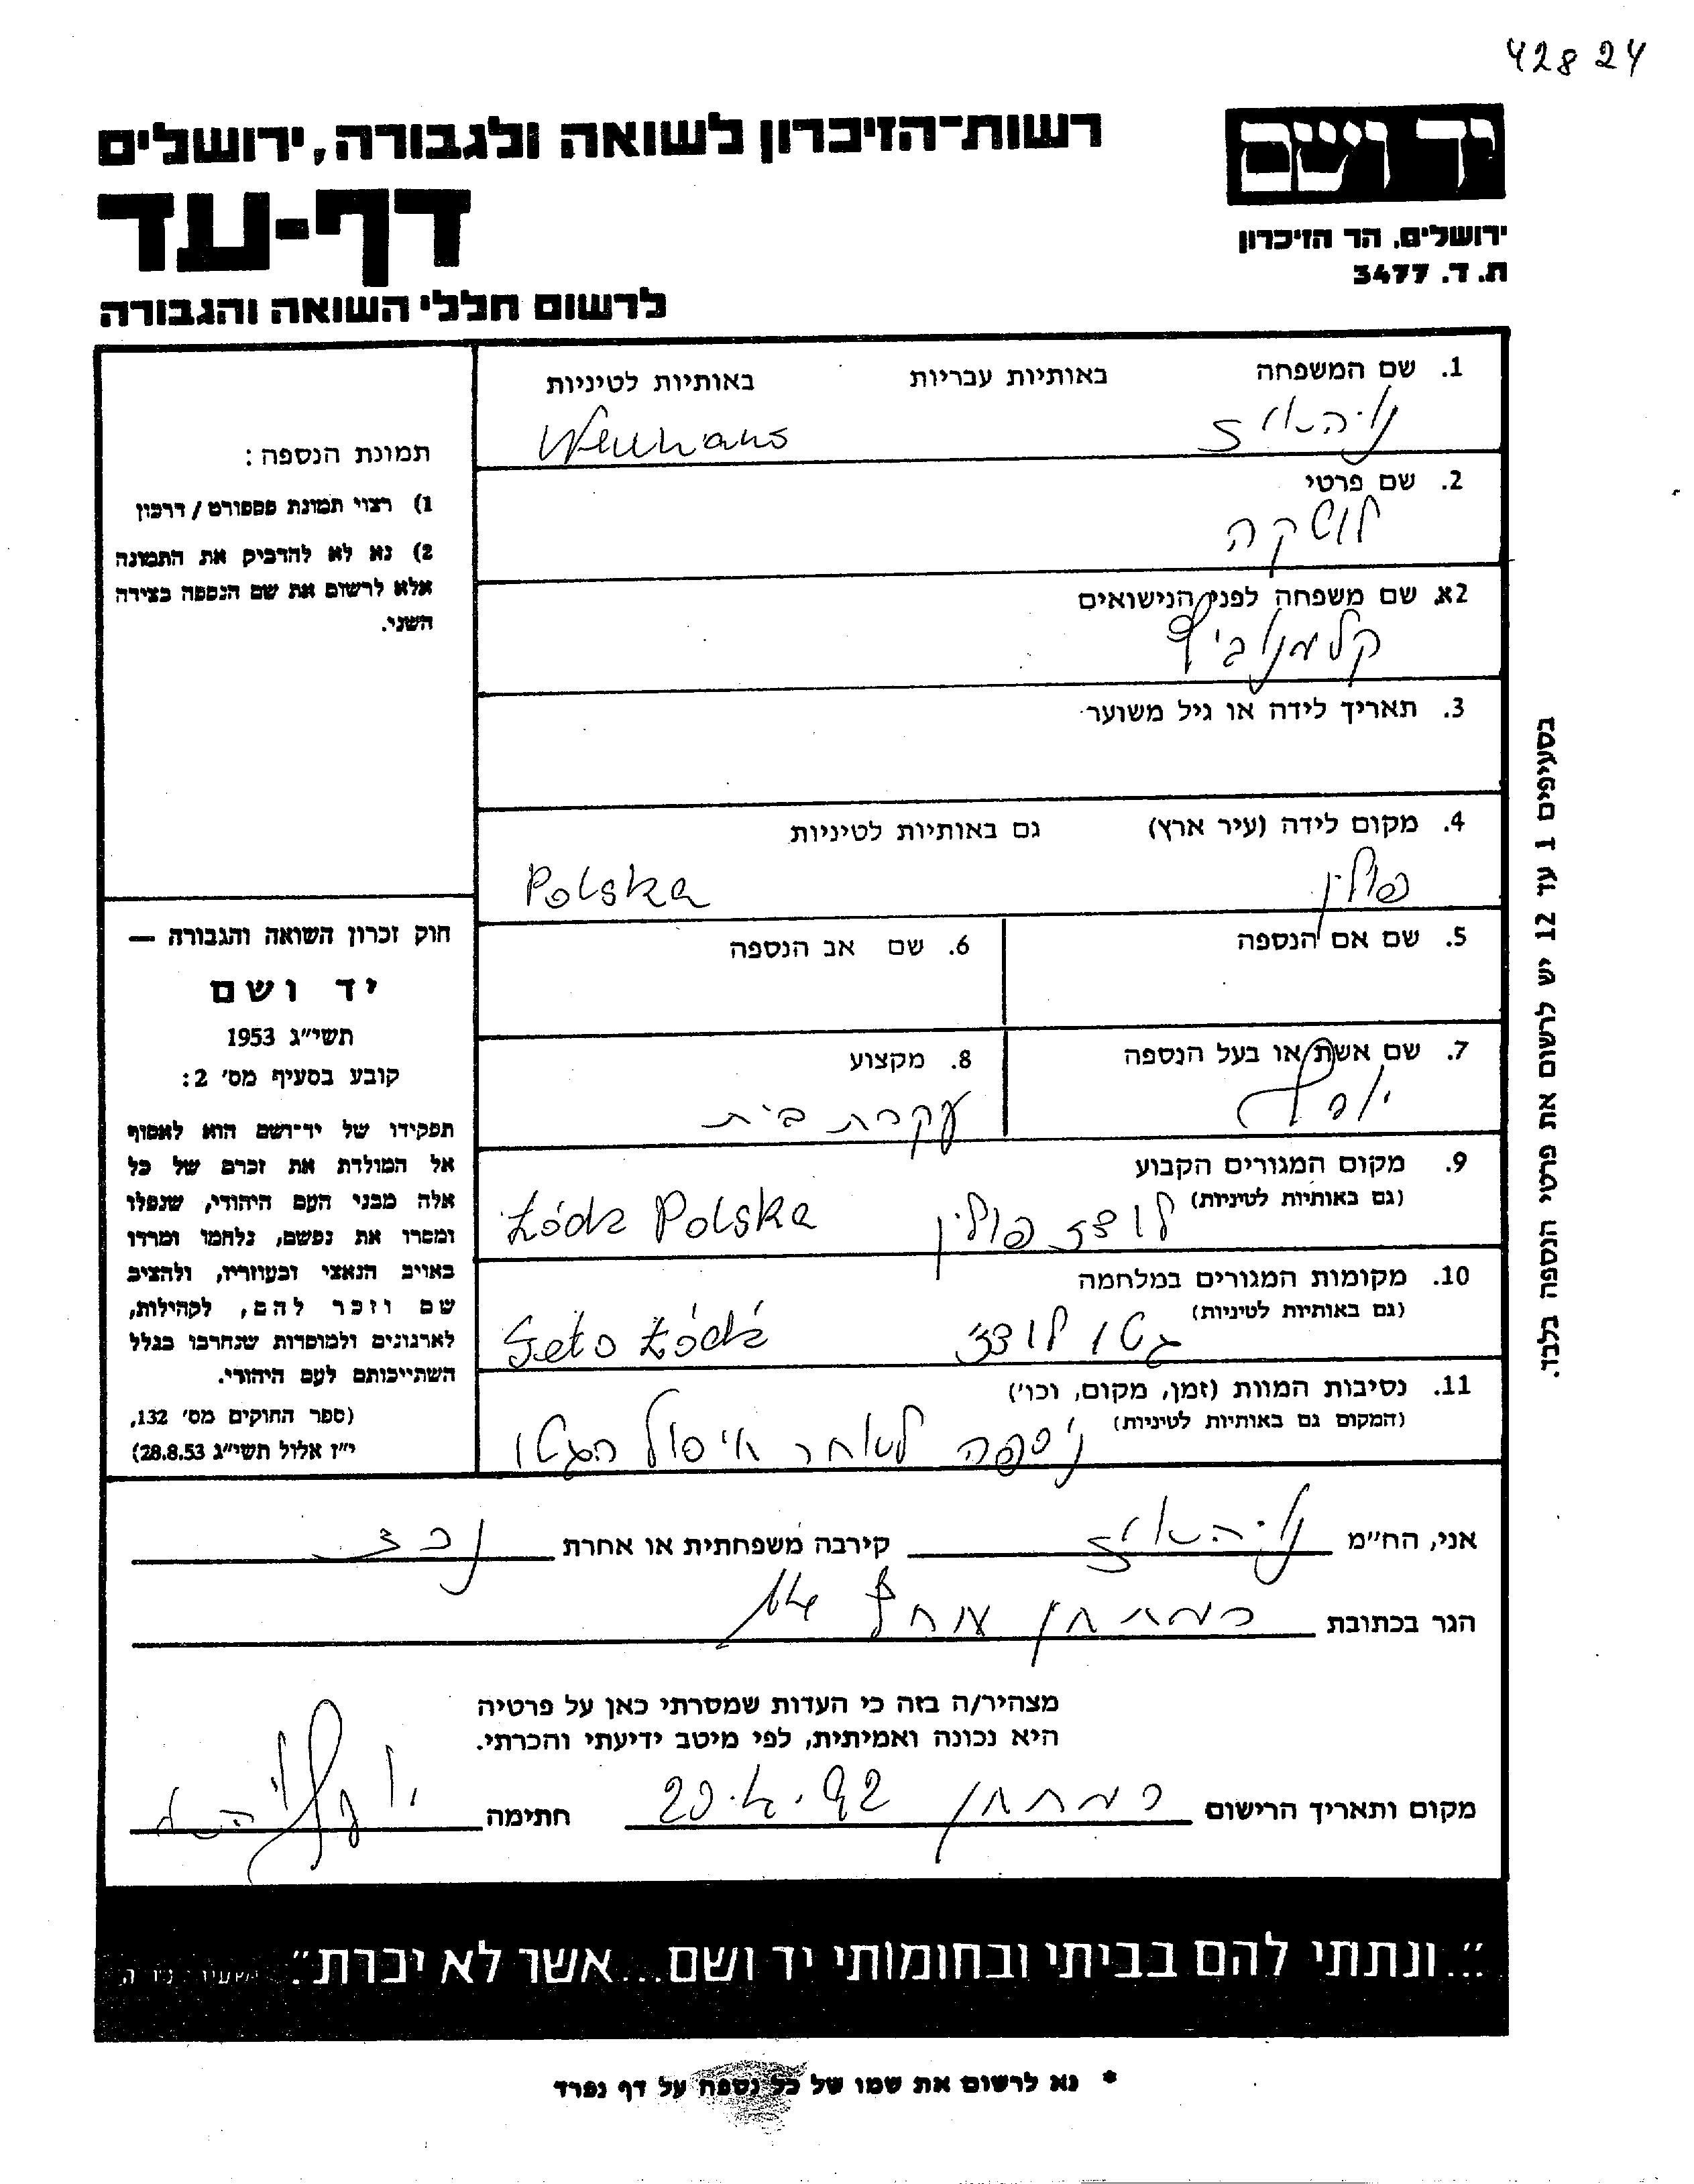 42824
יד ושם
רשות-הזיכרון לשואה ולגבורה, ירושלים
דף-עד
ירושלים, הר הזיכרון
ת.ד. 3477
לרשום חללי השואה והגבורה
1. שם המשפחה באותיות עבריות באותיות לטיניות
נויהאוז Neuhaus
2. שם פרטי
לושקה
2א. שם משפחה לפני הנישואים
3. תאריך לידה או גיל משוער
4. מקום לידה (עיר ארץ) גם באותיות לטיניות
פולין Polska
5. שם אם הנספה 6. שם אב הנספה
7. שם אשת/או בעל הנספה 8. מקצוע
עקרת בית
9. מקום המגורים הקבוע
(גם באותיות לטיניות) לודז פולין Łódz Polska
10. מקומות המגורים במלחמה
(גם באותיות לטיניות) גטו לודז' Geto Łódź
11. נסיבות המוות (זמן, מקום, וכו')
(המקום גם באותיות לטיניות) ניספה לאחר חיסול הגטו
תמונת הנספה:
1) רצוי תמונת פספורט / דרכון
2) נא לא להדביק את התמונה
אלא לרשום את שם הנספה בצידה
השני.
חוק זכרון השואה והגבורה —
יד ושם
תשי"ג 1953
קובע בסעיף מס' 2:
תפקידו של יד-ושם הוא לאסוף
אל המולדת את זכרם של כל
אלה מבני העם היהודי, שנפלו
ומסרו את נפשם, נלחמו ומרדו
באויב הנאצי ובעוזריו, ולהציב
שם וזכר להם, לקהילות,
לארגונים ולמוסדות שנחרבו בגלל
השתייכותם לעם היהודי.
(ספר החוקים מס' 132,
י"ז אלול תשי"ג 28.8.53)
בסעיפים 1 עד 12 יש לרשום את פרטי הנספה בלבד.
אני, הח"מ נויהאוז קירבה משפחתית או אחרת נכד
הגר בכתובת
מצהיר/ה בזה כי העדות שמסרתי כאן על פרטיה
היא נכונה ואמיתית, לפי מיטב ידיעתי והכרתי.
מקום ותאריך הרישום 20.4.92 חתימה
"...ונתתי להם בביתי ובחומותי יד ושם...אשר לא יכרת". ישעיהו נו ה
* נא לרשום את שמו של כל נספה על דף נפרד